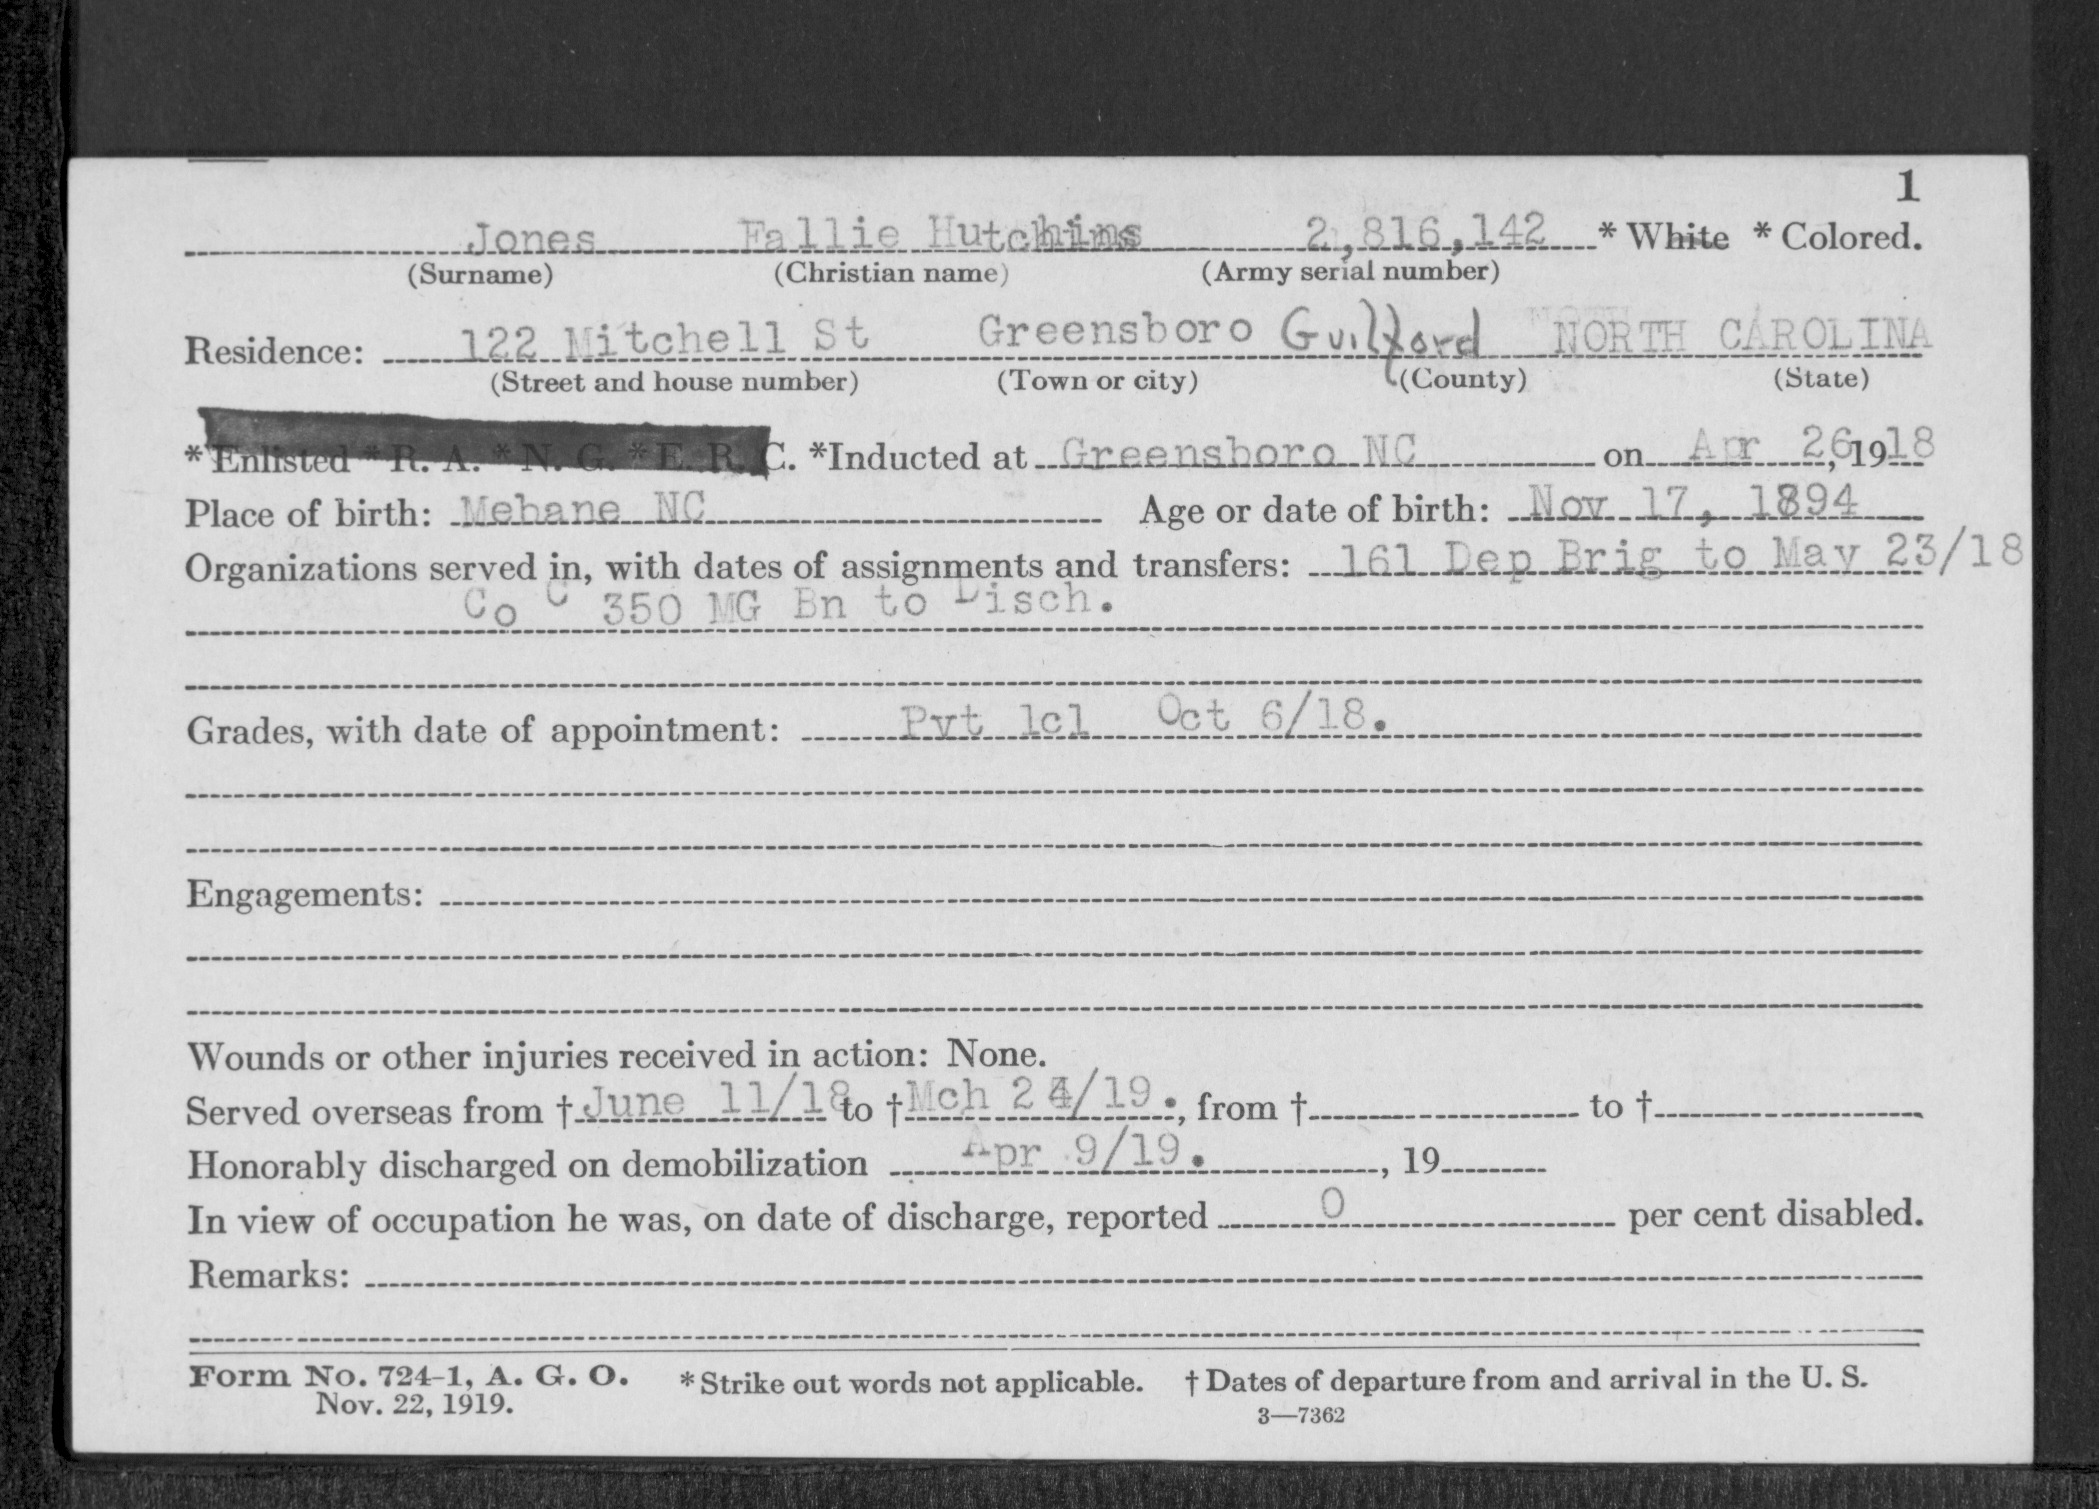 1
Jones Fallie Hutchins 2,816,142 * White * Colored.
(Surname) (Christian name) (Army serial number)
Residence: 122 Mitchell St Greensboro Guilford NORTH CAROLINA
(Street and house number) (Town or city) (County) (State)
*Enlisted *R. A. *N. G. *E. R. C. *Inducted at Greensboro NC on Apr 26, 1918
Place of birth: Mebane NC Age or date of birth: Nov 17, 1894
Organizations served in, with dates of assignments and transfers: 161 Dep Brig to May 23/18
Co C 350 MG Bn to Disch.
Grades, with date of appointment: Pvt 1cl Oct 6/18.
Engagements:
Wounds or other injuries received in action: None.
Served overseas from † June 11/18 to † Mch 24/19., from † to †
Honorably discharged on demobilization Apr 9/19. , 19
In view of occupation he was, on date of discharge, reported 0 per cent disabled.
Remarks:
Form No. 724-1, A. G. O. * Strike out words not applicable. † Dates of departure from and arrival in the U. S.
Nov. 22, 1919. 3—7362